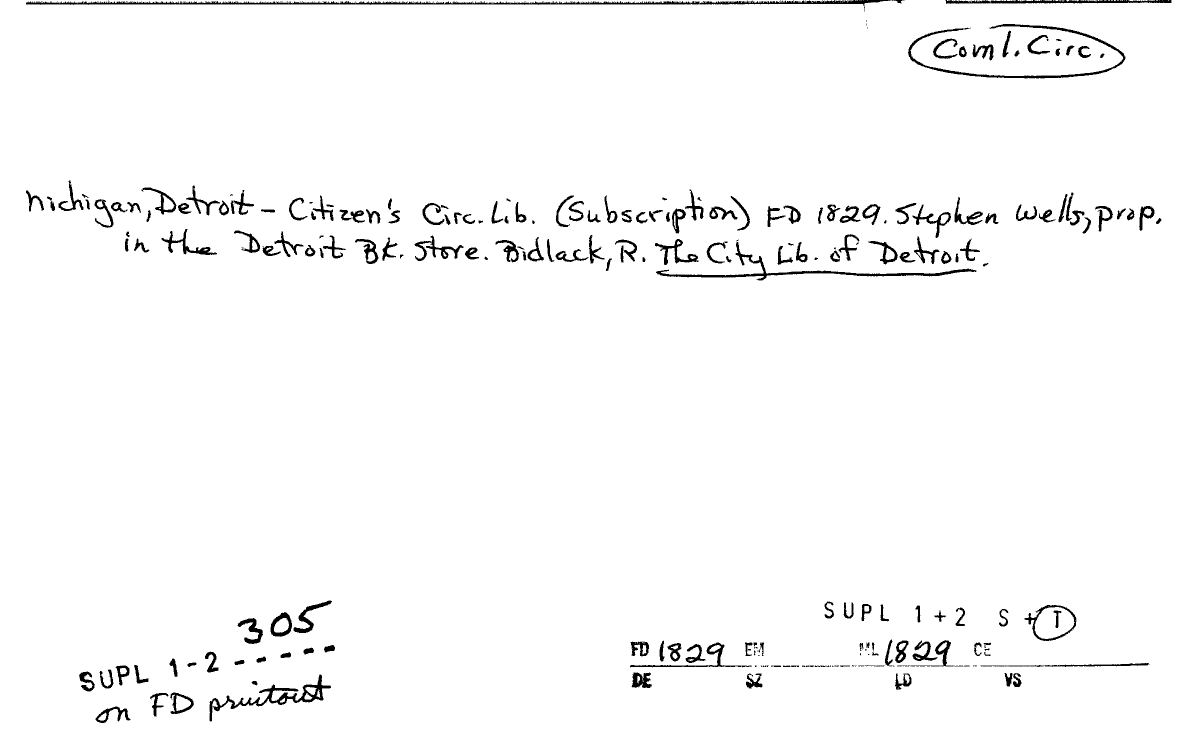 Coml. Circ.
Michigan, Detroit - Citizen's Circ. Lib. (Subscription) FD 1829. Stephen Wells, prop.
in the Detroit Bk. Store. Bidlack, R. The City Lib. of Detroit.
305
SUPL 1-2 -----
on FD printout
SUPL 1+2 S + T
FD 1829 EM ML 1829 CE
DE SZ LD VS